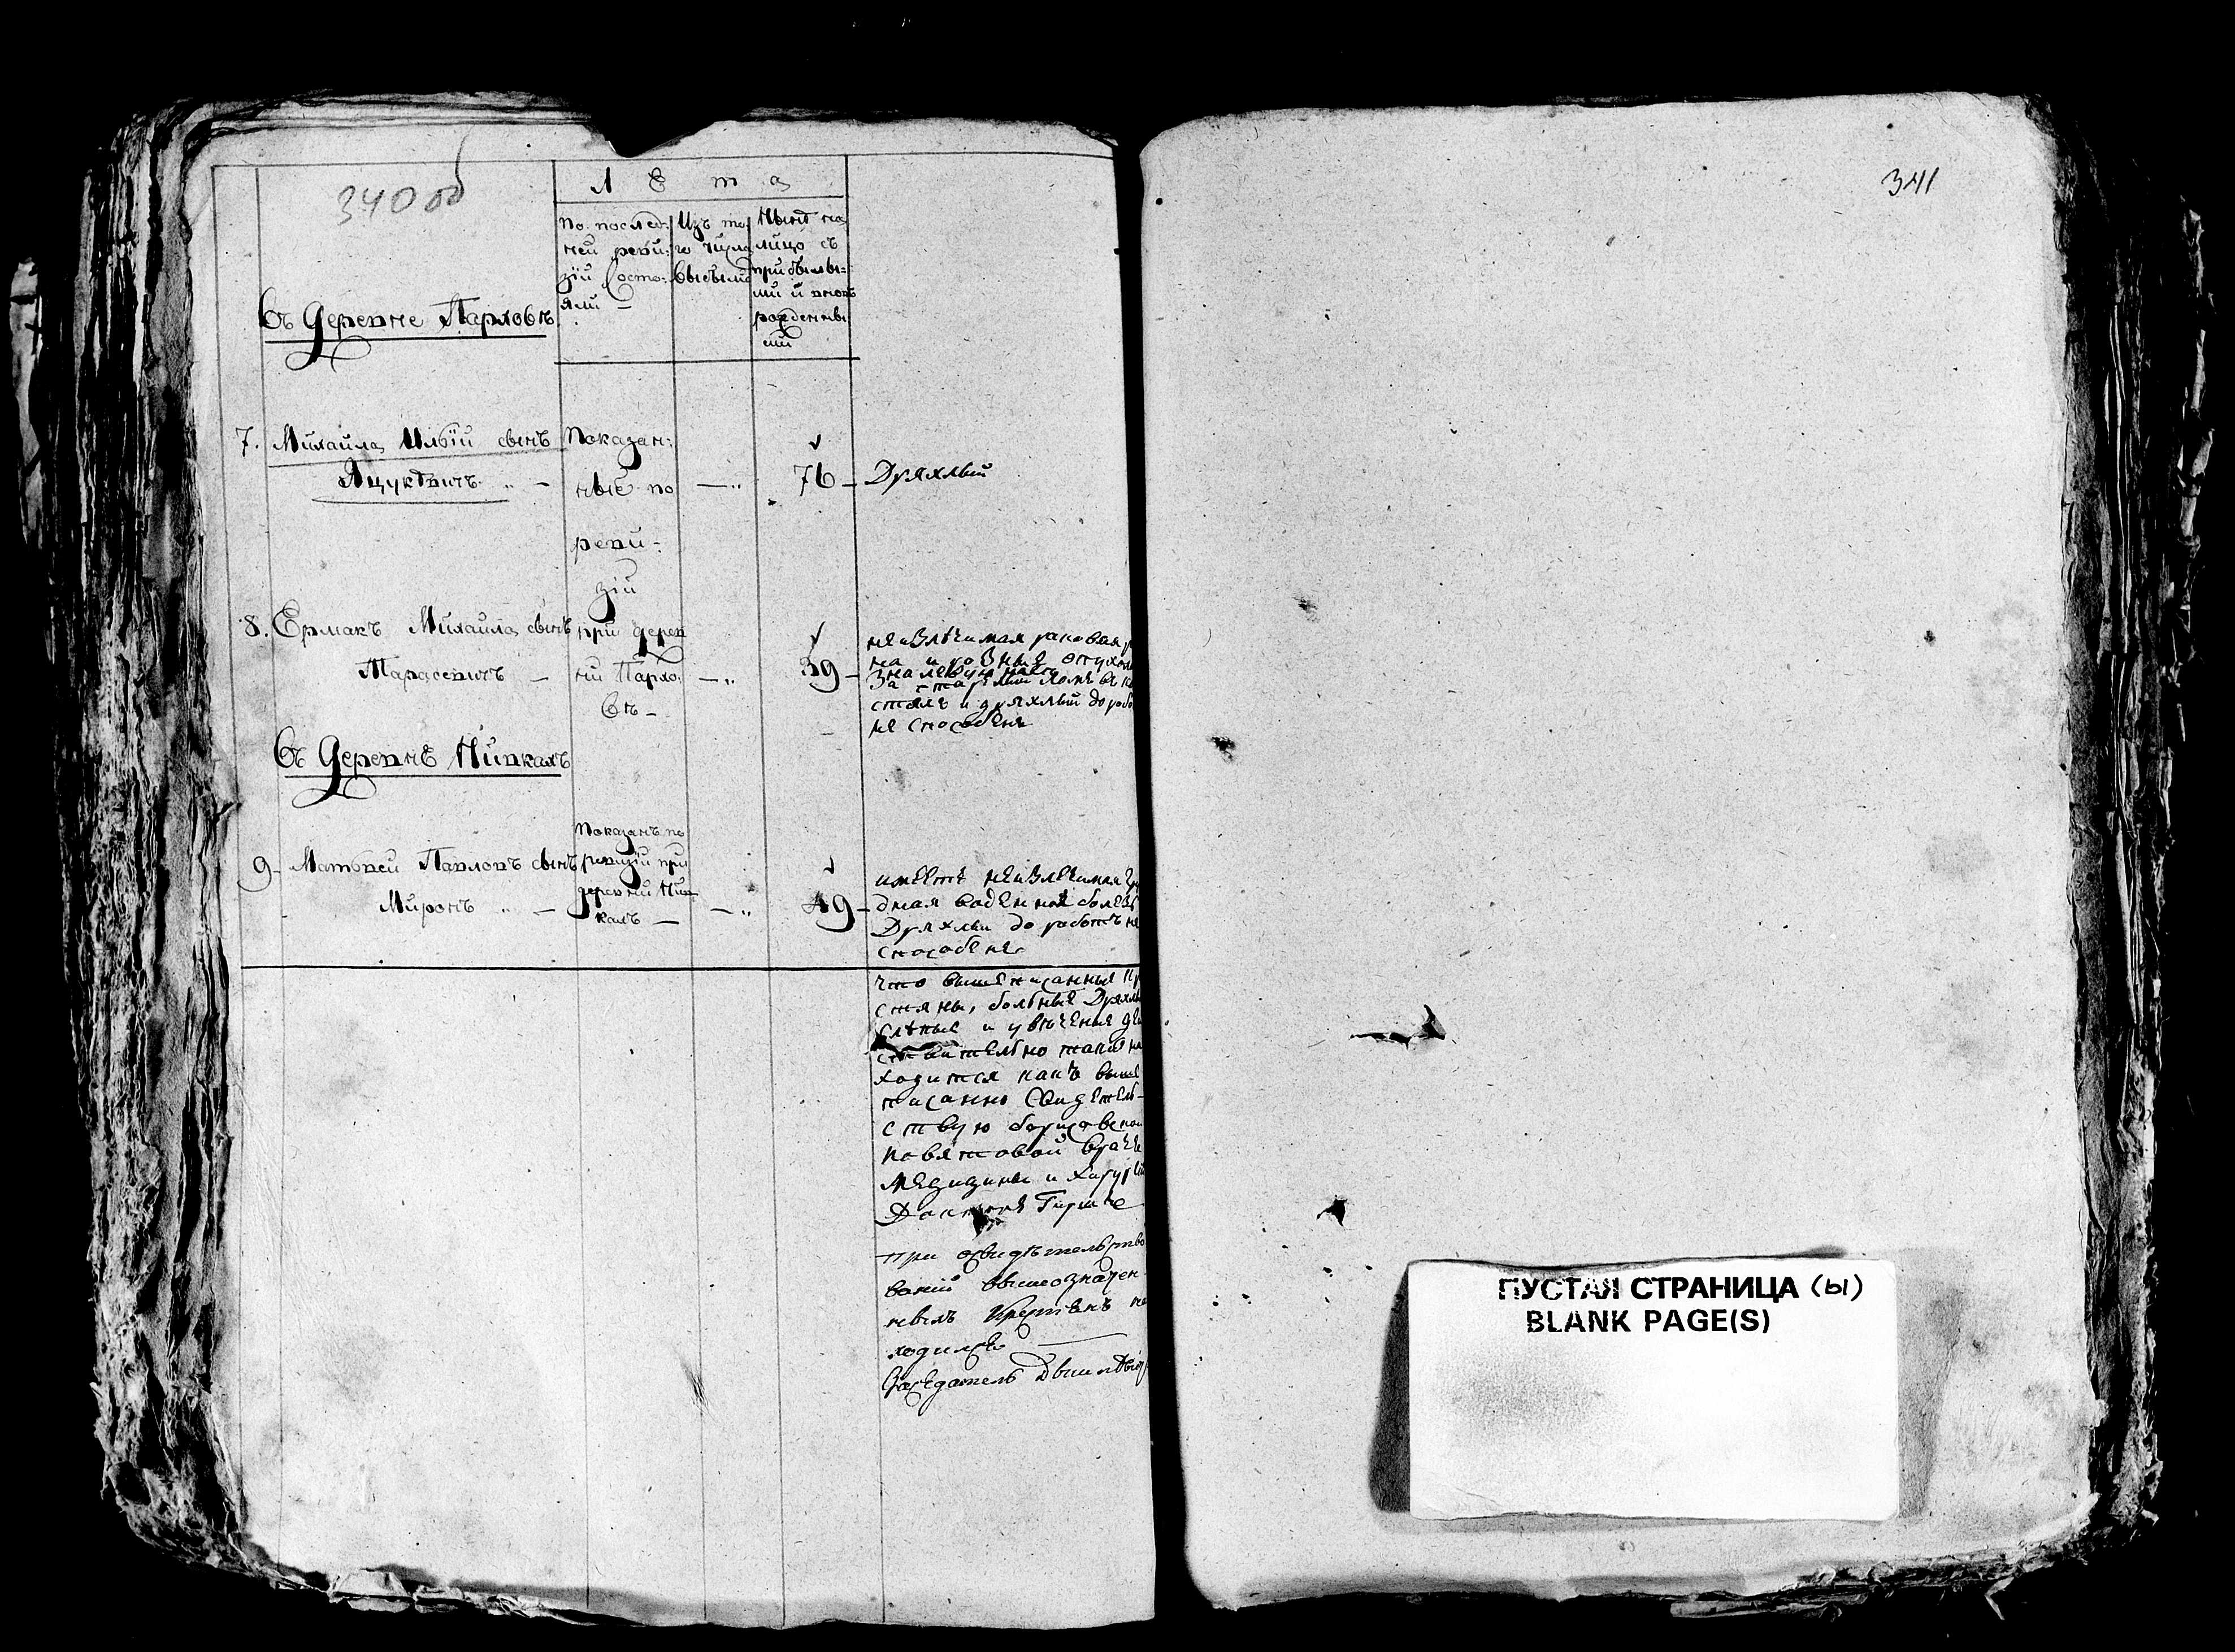 340 об
Лѣта
По послед:
ней реви:
зіи Состо:
яли —
Изъ то
го числа
выбыли
Нынѣ на
лицо съ
прибылы=
ми и вновь
рожденны
ми
Въ Деревне Парховѣ
7. Михайла Ильїи сынъ
Яцукѣвичъ
Показан:
ные по
реви-
зіи
при дерев
ни Пархо:
вѣ —
76 — Дряхлый
8. Ермакъ Михайла сынъ
Парасевичъ —
39 —
неизлѣчимая раковая
на и розные опухол
за старымъ
и дряхлый до рабо
не способенъ
Въ Деревнѣ Нивкахъ
9 — Матвей Павловъ сынъ
Миронъ —
Показанъ по
ревизіи при
деревни Нив
кахъ —
49 —
имеетъ неизлечимая
водена болез
Дряхлы до работъ не
способенъ
что вышеписанные кр
стяны, больные Дряхлы
слѣпые и увѣчные дей
ствительно такъ на
ходится какъ выше
писанно Свидетель-
ствую борисовскои
повятовой врачъ
Медицины и Хирургіи
Докторъ
При освидѣтельство
ваніи вышеозначен
ныхъ Крестянъ на
ходился —
Заседатель
341
ПУСТАЯ СТРАНИЦА (Ы)
BLANK PAGE(S)